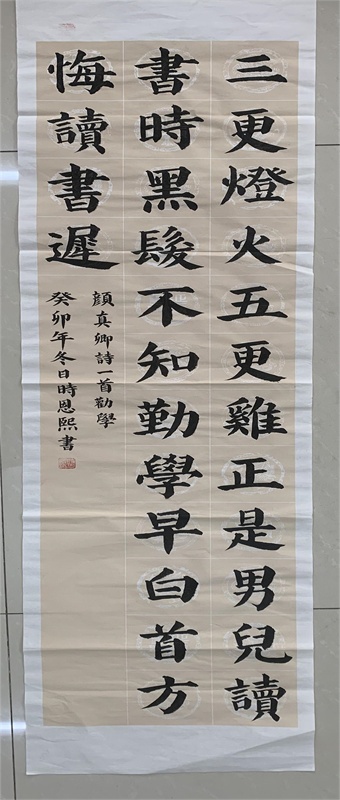 三更燈火五更雞正是男兒讀
書時黑髮不知勤學早白首方
悔讀書遲
顔真卿詩一首勸學
癸卯年冬日時恩熙書